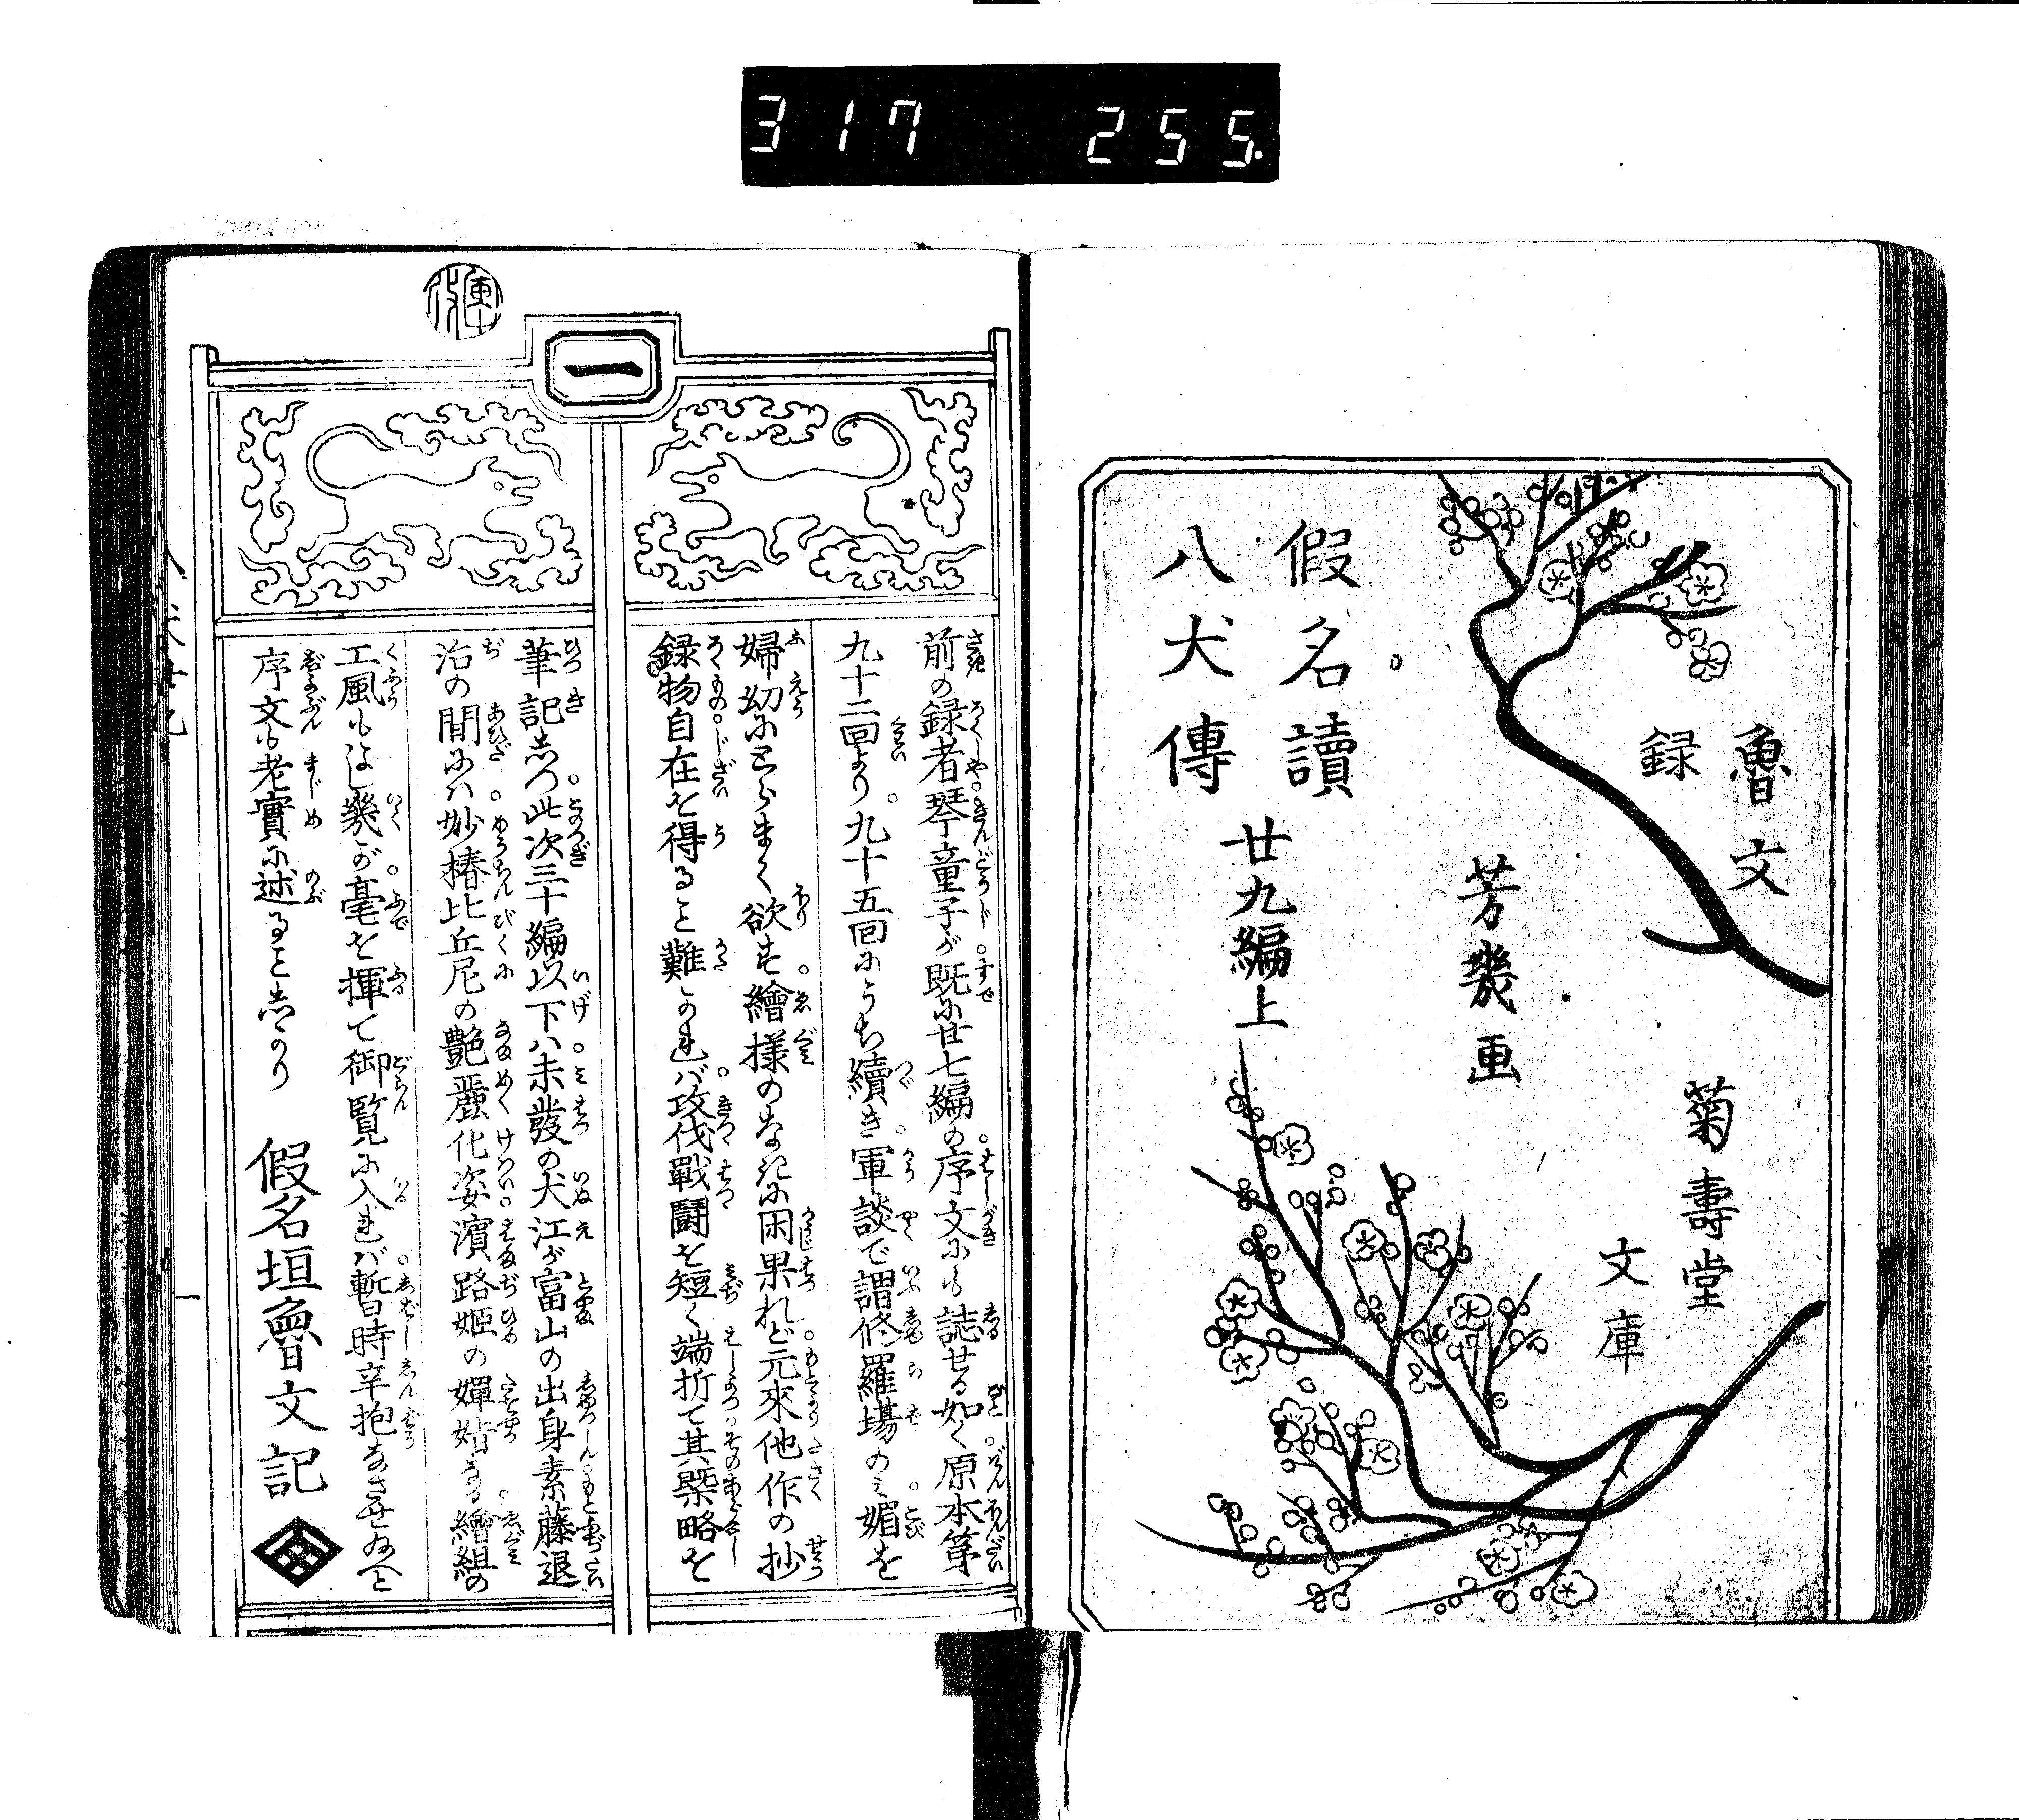 317 255.
魯文
録
菊壽堂
文庫
芳幾画
假名讀
八犬傳
廿九編上
一
前の録者琴童子が既に廿七編の序文にも誌せる如く原本第
九十二回より九十五回にうち續き軍談で謂修羅場のミ媚を
婦幼にとらまく欲す繪様のなきに困果れど元來他作の抄
録物自在を得ること難かれバ攻伐戰鬪を短く端折て其槩略を
筆記しつ此次三十編以下ハ未發の犬江が富山の出身素藤退
治の間にハ妙椿比丘尼の艶麗化姿濱路姫の嬋娟なる繪組の
工風もよし幾が毫を揮て御覧に入れバ暫時辛抱なさせ給へと
序文も老實に述ることしかり
假名垣魯文記